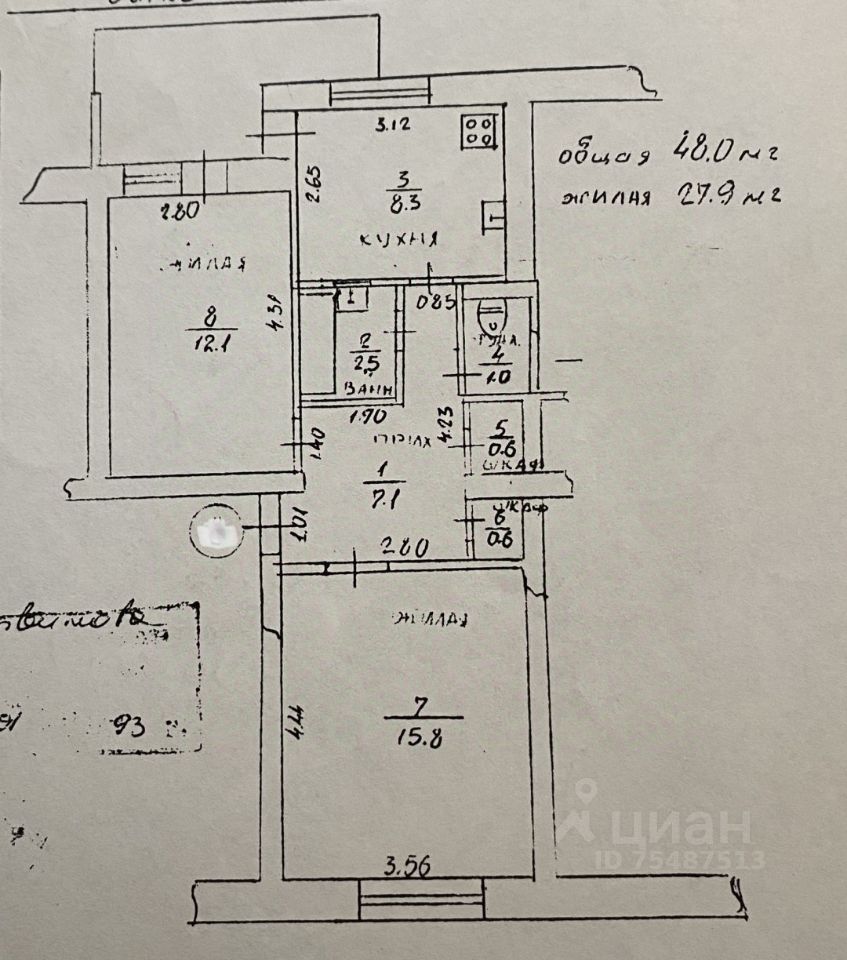 общая 48.0 м2
жилая 27.9 м2
3.12
2.65
3
8.3
КУХНЯ
2.80
ЖИЛАЯ
8
12.1
4.31
0.85
2
2.5
ВАНН
1.70
4
1.0
4.23
5
0.6
ШКАФ
1.40
1
7.1
ШКАФ
6
0.6
1.01
2.80
ЖИЛАЯ
7
15.8
4.44
93
3.56
циан
ID 75487513